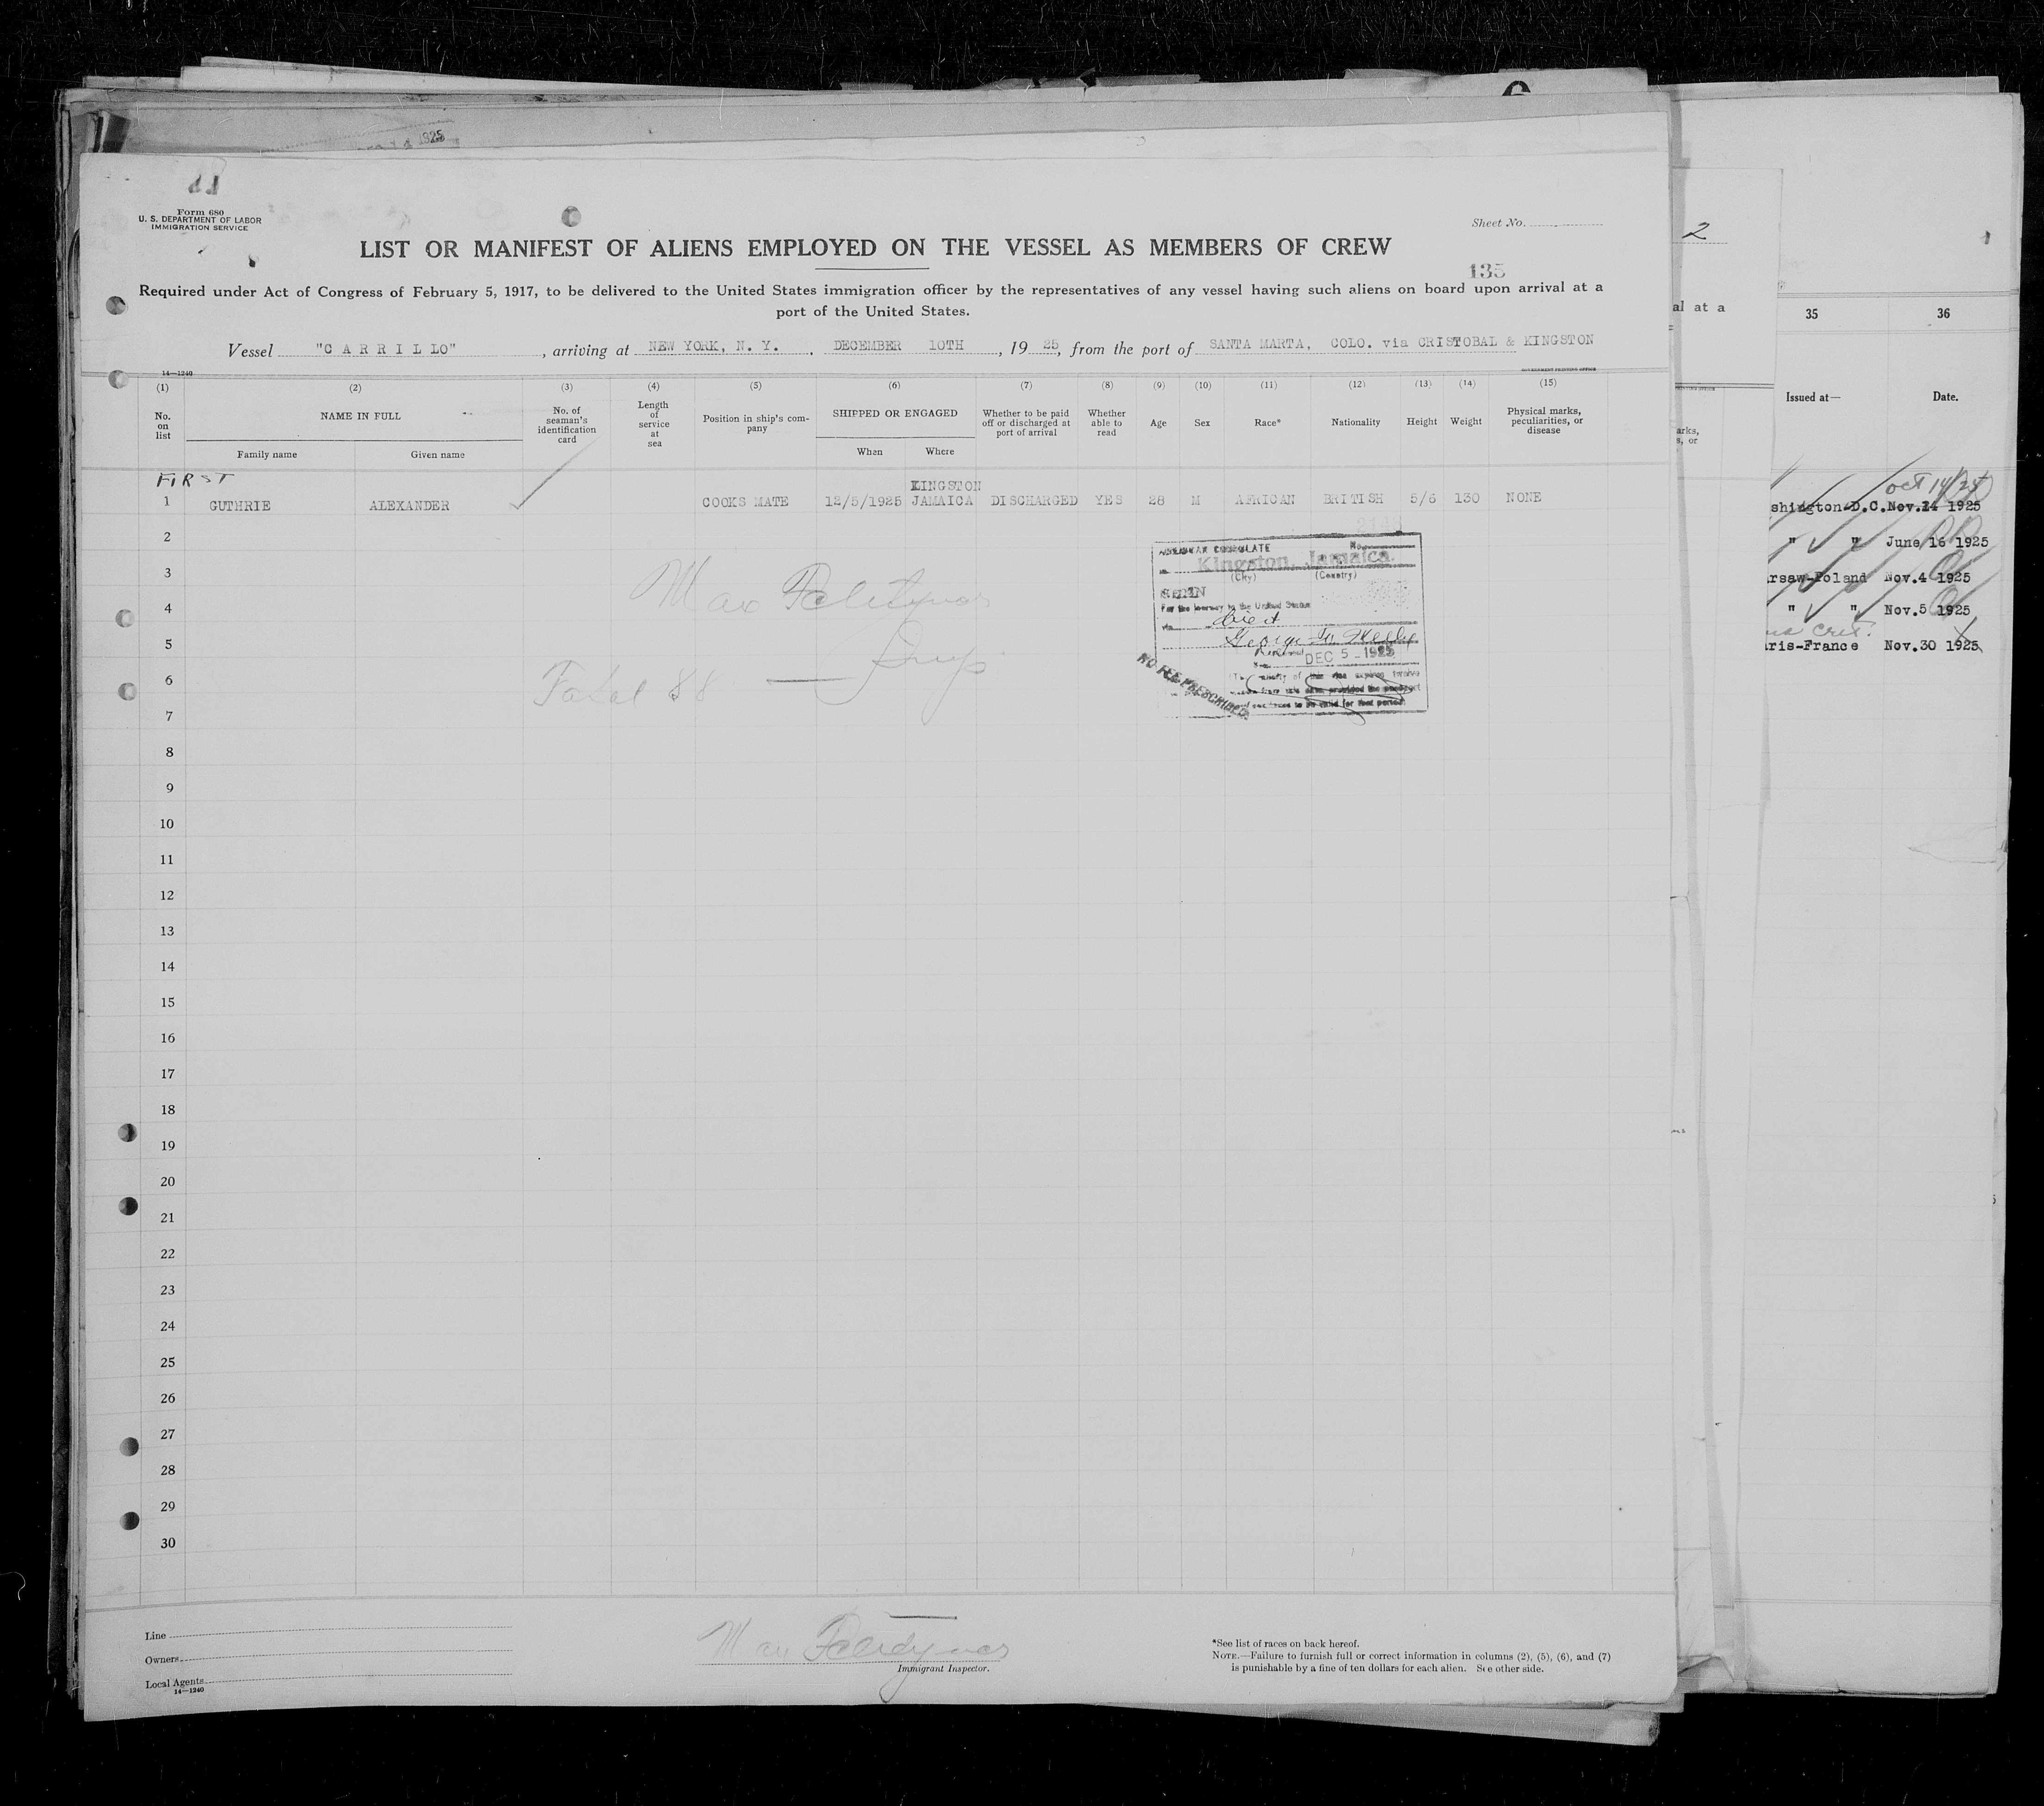 1925
Form 680
U. S. DEPARTMENT OF LABOR
IMMIGRATION SERVICE
Sheet No.
LIST OR MANIFEST OF ALIENS EMPLOYED ON THE VESSEL AS MEMBERS OF CREW
135
Required under Act of Congress of February 5, 1917, to be delivered to the United States immigration officer by the representatives of any vessel having such aliens on board upon arrival at a
port of the United States.
Vessel "C A R R I L LO", arriving at NEW YORK, N. Y., DECEMBER 10TH, 1925, from the port of SANTA MARTA, COLO. via CRISTOBAL & KINGSTON
14—1240
GOVERNMENT PRINTING OFFICE
(1) (2) (3) (4) (5) (6) (7) (8) (9) (10) (11) (12) (13) (14) (15)
No. on list
NAME IN FULL
Family name
Given name
No. of seaman's identification card
Length of service at sea
Position in ship's company
SHIPPED OR ENGAGED
When
Where
Whether to be paid off or discharged at port of arrival
Whether able to read
Age
Sex
Race*
Nationality
Height
Weight
Physical marks, peculiarities, or disease
FIRST
1 GUTHRIE ALEXANDER COOKS MATE 12/5/1925 KINGSTON JAMAICA DISCHARGED YES 28 M AFRICAN BRITISH 5/6 130 NONE
2
3
4
5
6
7
8
9
10
11
12
13
14
15
16
17
18
19
20
21
22
23
24
25
26
27
28
29
30
Max
Insp.
Total 88
CONSULATE No.
Kingston, Jamaica.
(City) (Country)
SEEN
For the journey to the United States
via direct
George
DEC 5 - 1925
NO FEE PRESCRIBED.
Line
Owners
Local Agents
14—1240
Max
Immigrant Inspector.
*See list of races on back hereof.
NOTE.—Failure to furnish full or correct information in columns (2), (5), (6), and (7)
is punishable by a fine of ten dollars for each alien. See other side.
2
al at a
35 36
Issued at— Date.
arks,
s, or
oct 14/25
shington-D.C. Nov.24 1925
" " June 16 1925
rsaw-Poland Nov.4 1925
" " Nov.5 1925
ris-France Nov.30 1925